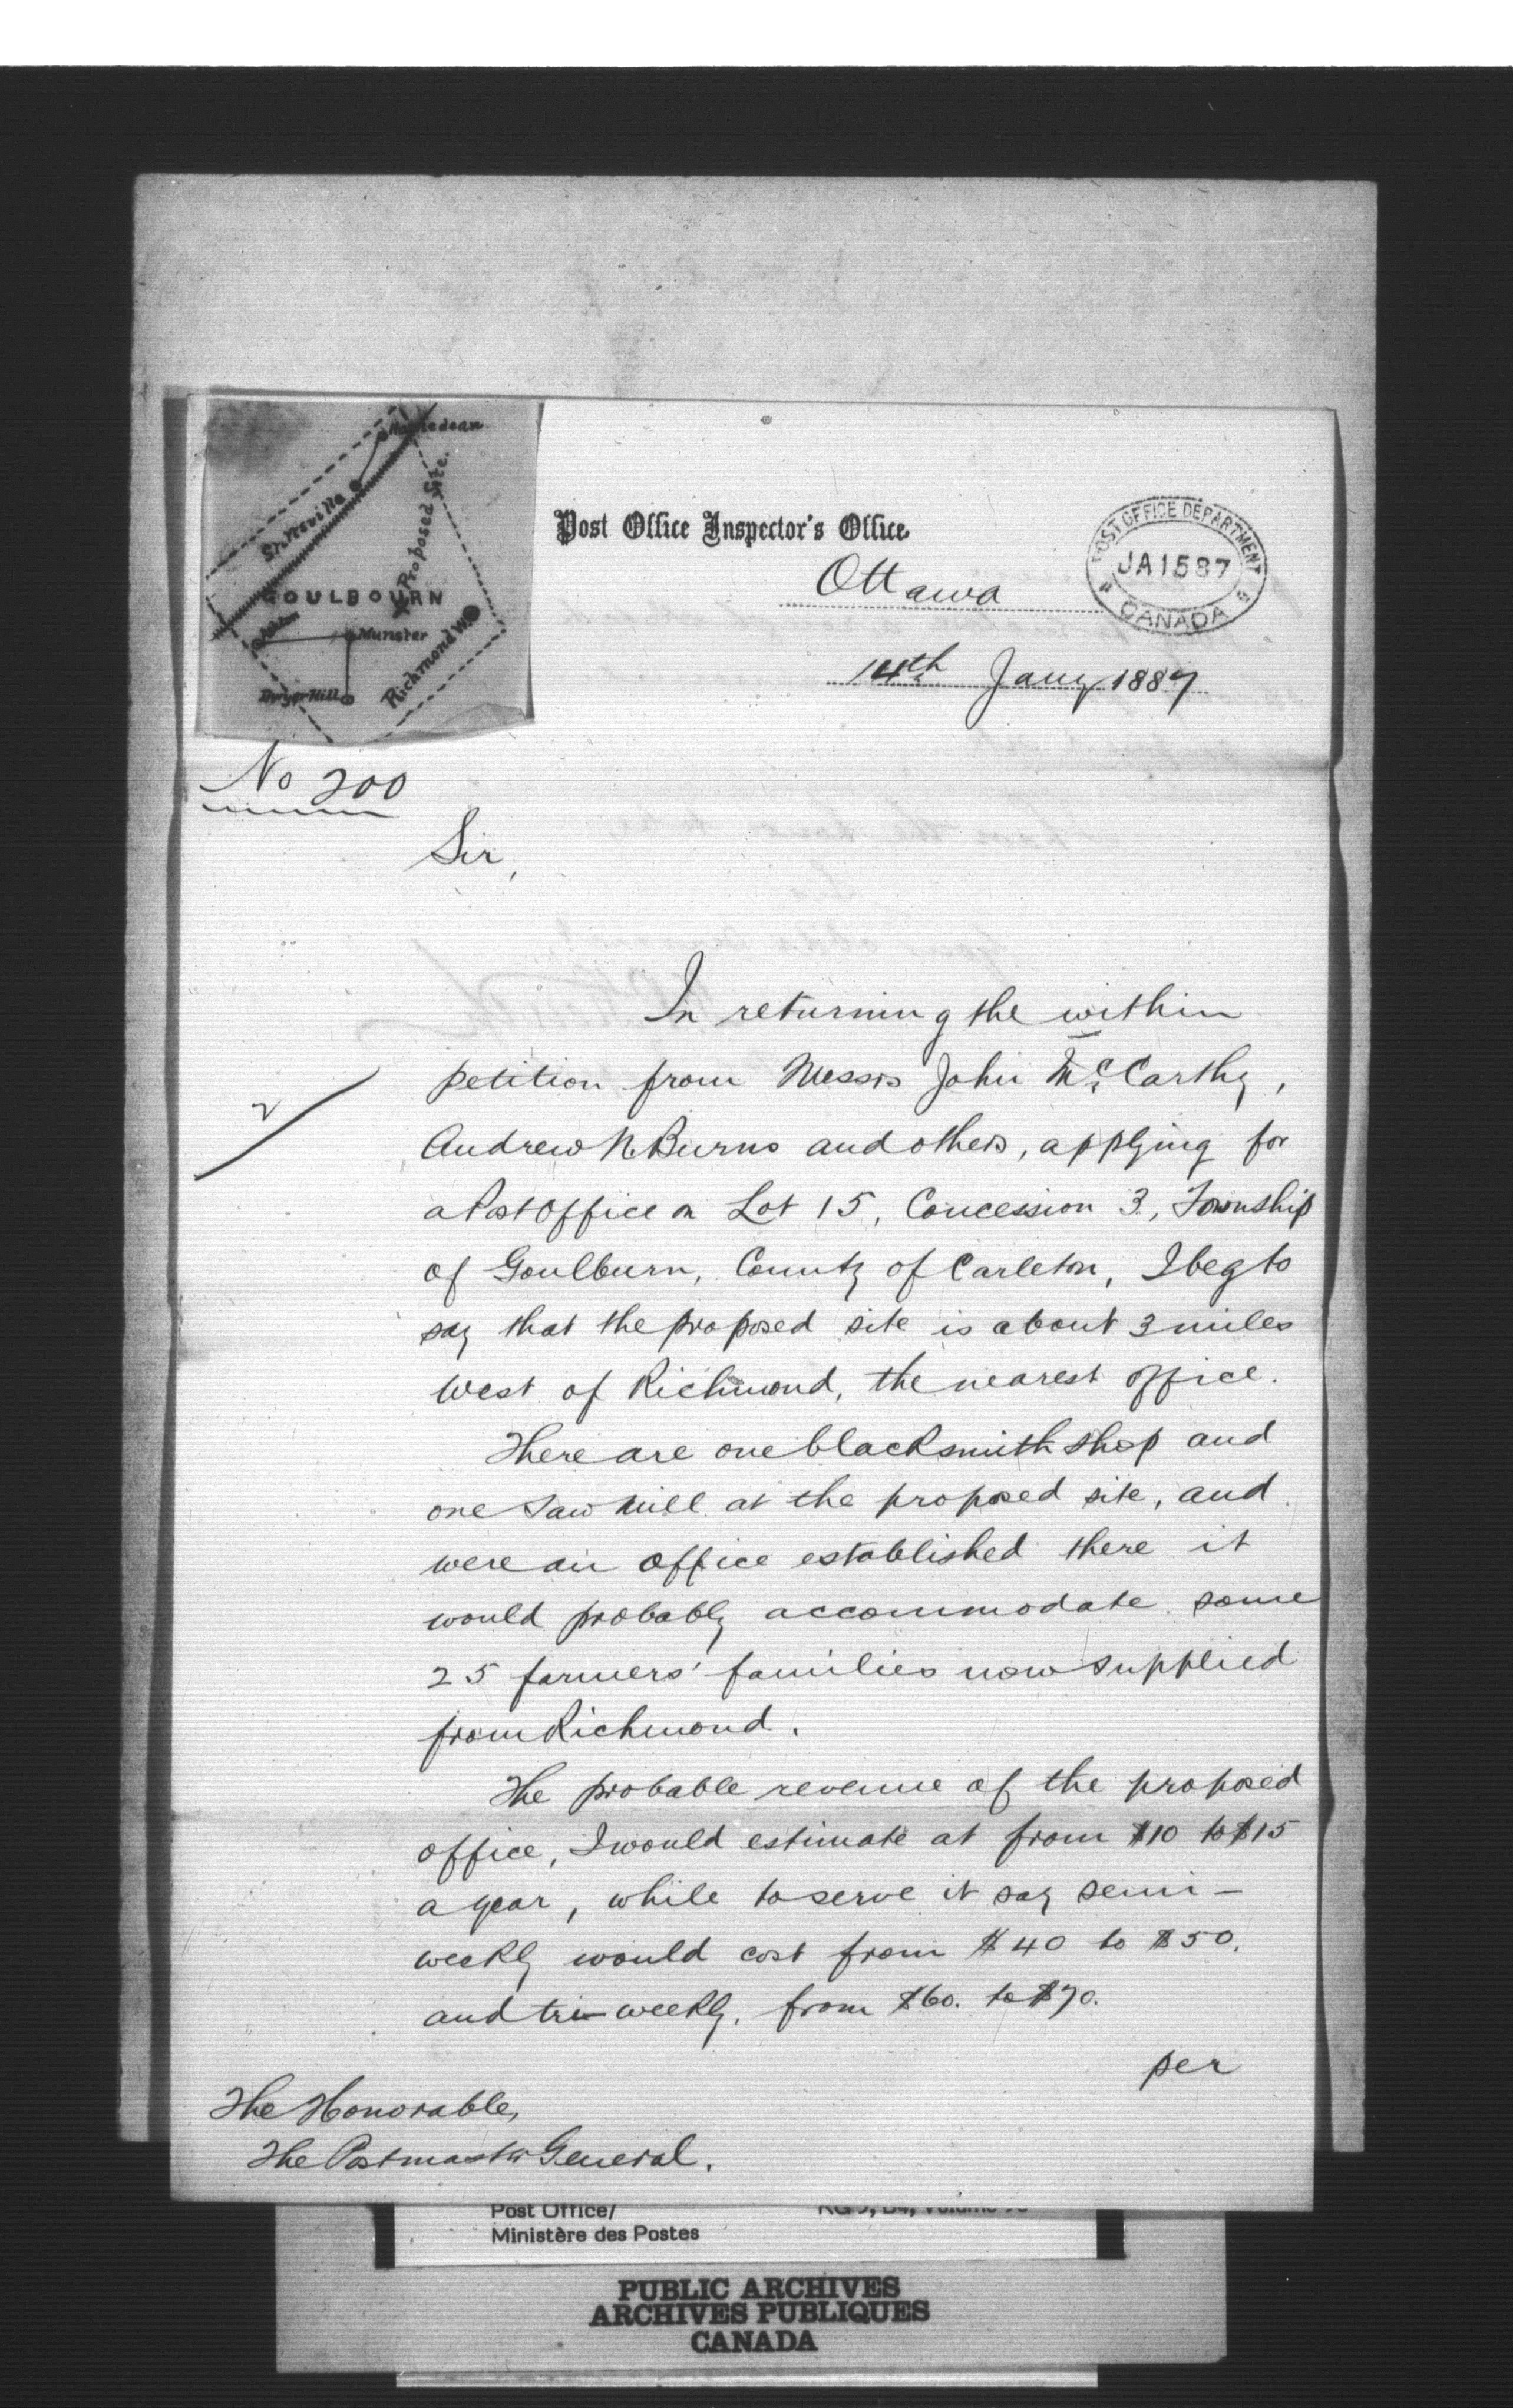 Stittsville
Proposed Site.
GOULBOURN
Ashton
Munster
Richmond W.
Dwyer Hill
Post Office Inspector's Office.
Ottawa
POST OFFICE DEPARTMENT
JA 15 87
CANADA
14th Jany 1887
No 200
Sir,
In returning the within
petition from Messrs John McCarthy,
Andrew N. Burns and others, applying for
a Post Office on Lot 15, Concession 3, Township
of Goulburn, County of Carleton, I beg to
say that the proposed site is about 3 miles
west of Richmond, the nearest office.
There are one blacksmith shop and
one saw mill at the proposed site, and
were an office established there it
would probably accommodate some
25 farmers' families now supplied
from Richmond.
The probable revenue of the proposed
office, I would estimate at from $10 to $15
a year, while to serve it say semi-
weekly would cost from $40 to $50.
and tri-weekly, from $60. to $70.
per
The Honorable,
The Postmaster General.
Post Office/
Ministère des Postes
PUBLIC ARCHIVES
ARCHIVES PUBLIQUES
CANADA